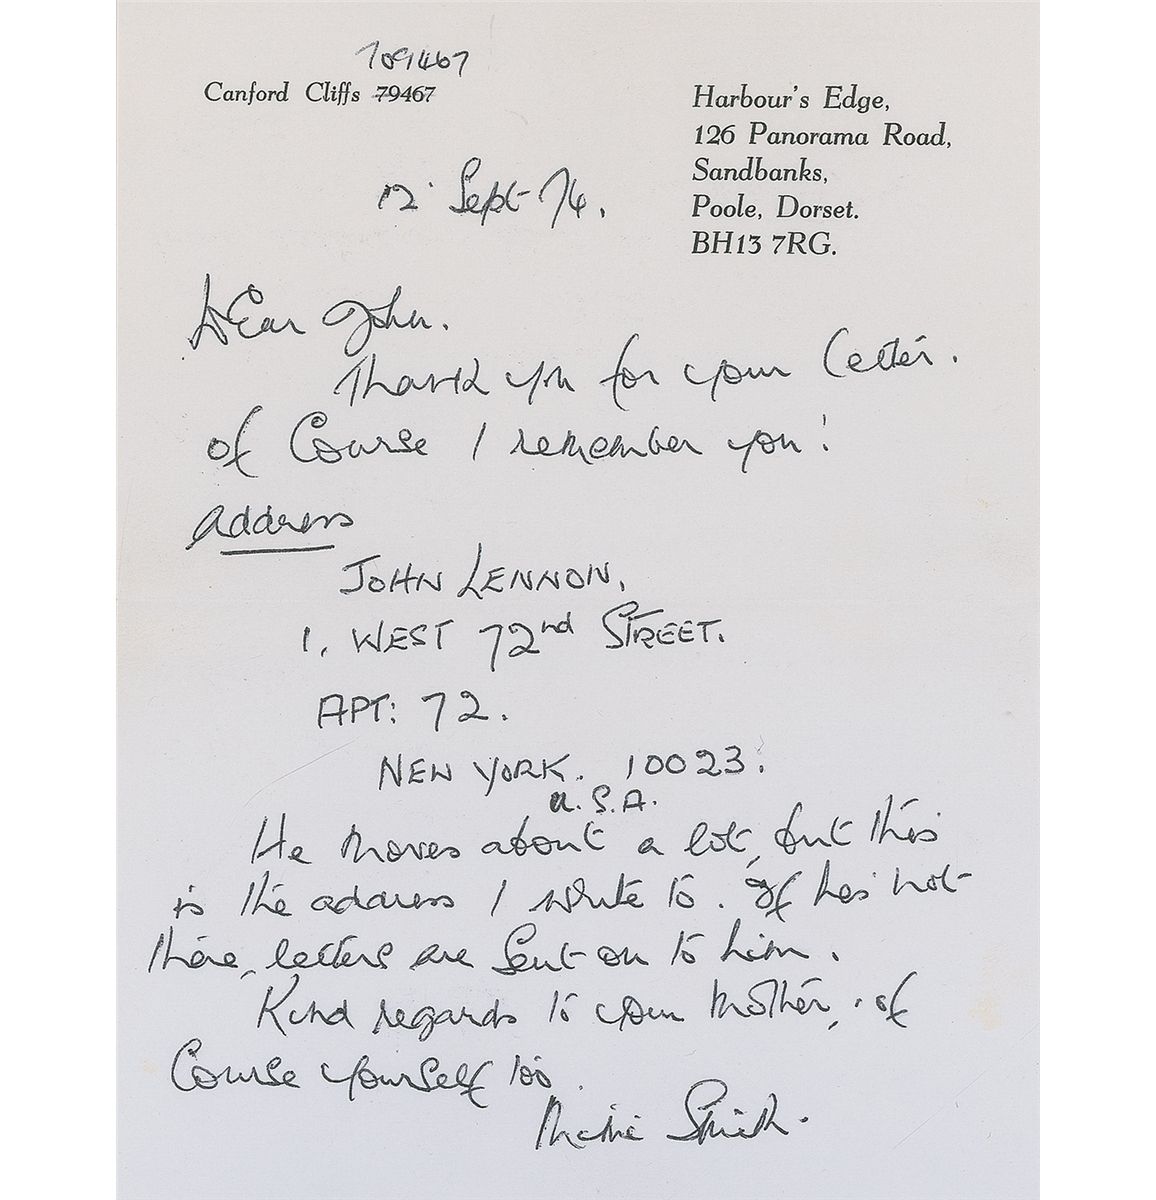 709467
Canford Cliffs 79467
Harbour's Edge,
126 Panorama Road,
Sandbanks,
Poole, Dorset.
BH13 7RG.
12 Sept-74.
Dear John.
Thank you for your letter.
of Course I remember you!
Address
JOHN LENNON,
1, WEST 72nd STREET.
APT: 72.
NEW YORK. 10023.
U.S.A.
He moves about a lot, but this
is the address I write to. If he's not
there, letters are sent on to him.
Kind regards to your Mother, of
Course yourself too.
Mimi Smith.